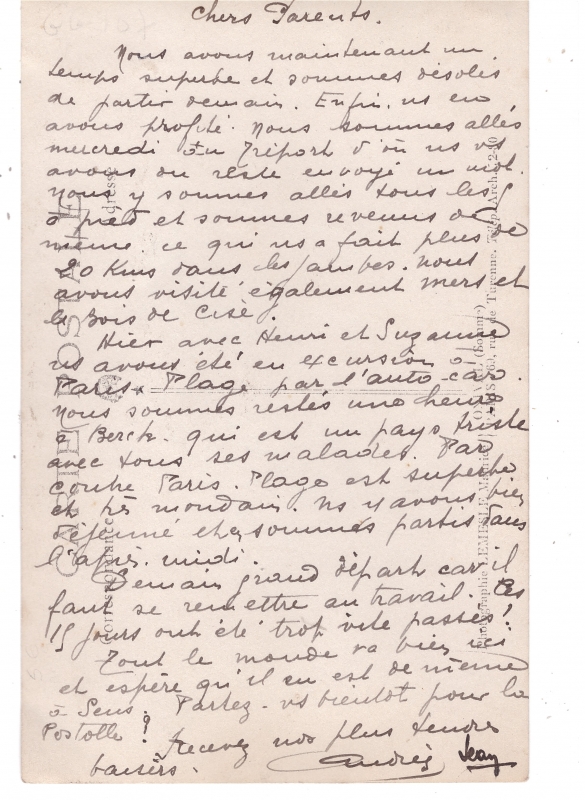 Chers Parents.
Nous avons maintenant un
temps superbe et sommes désolés
de partir demain. Enfin, ns en
avons profité. Nous sommes allés
mercredi au Tréport d'où ns vs
avons du reste envoyé un mot.
Nous y sommes allés tous les 5
à pied et sommes revenus de
même ce qui ns a fait plus de
20 Kms dans les jambes. Nous
avons visité également Mers et
le Bois de Cisé.
Hier avec Henri et Suzanne
ns avons été en excursion à
Paris-Plage par l'auto-car.
Nous sommes restés une heure
à Berck qui est un pays triste
avec tous ses malades. Par
contre Paris-Plage est superbe
et très mondain. Ns y avons bien
déjeuné et sommes partis dans
l'après-midi.
Demain grand départ car il
faut se remettre au travail. Ces
15 jours ont été trop vite passés!
Tout le monde va bien ici
et espère qu'il en est de même
à Sens. Partez-vs bientôt pour la
Postolle?
Recevez nos plus tendres
baisers.
Andrée Jean
CARTE POSTALE
Correspondance
Adresse
Photographie LEMESLE
rue de Turenne.